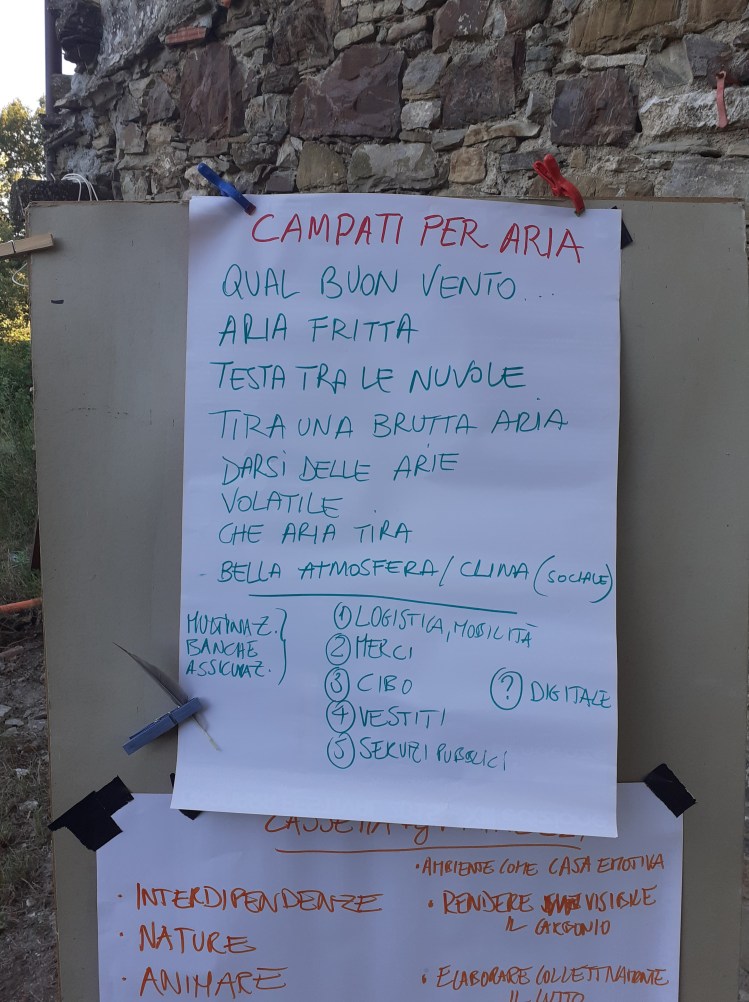 CAMPATI PER ARIA
QUAL BUON VENTO...
ARIA FRITTA
TESTA TRA LE NUVOLE
TIRA UNA BRUTTA ARIA
DARSI DELLE ARIE
VOLATILE
CHE ARIA TIRA
- BELLA ATMOSFERA/CLIMA (SOCIALE)
MULTINAZ.
BANCHE
ASSICURAZ.
① LOGISTICA, MOBILITÀ
② MERCI
③ CIBO
④ VESTITI
⑤ SERVIZI PUBBLICI
? DIGITALE
· INTERDIPENDENZE
· NATURE
· ANIMARE
· AMBIENTE COME CASA EMOTIVA
· RENDERE VISIBILE
IL CARBONIO
· ELABORARE COLLETTIVAMENTE
IL LUTTO